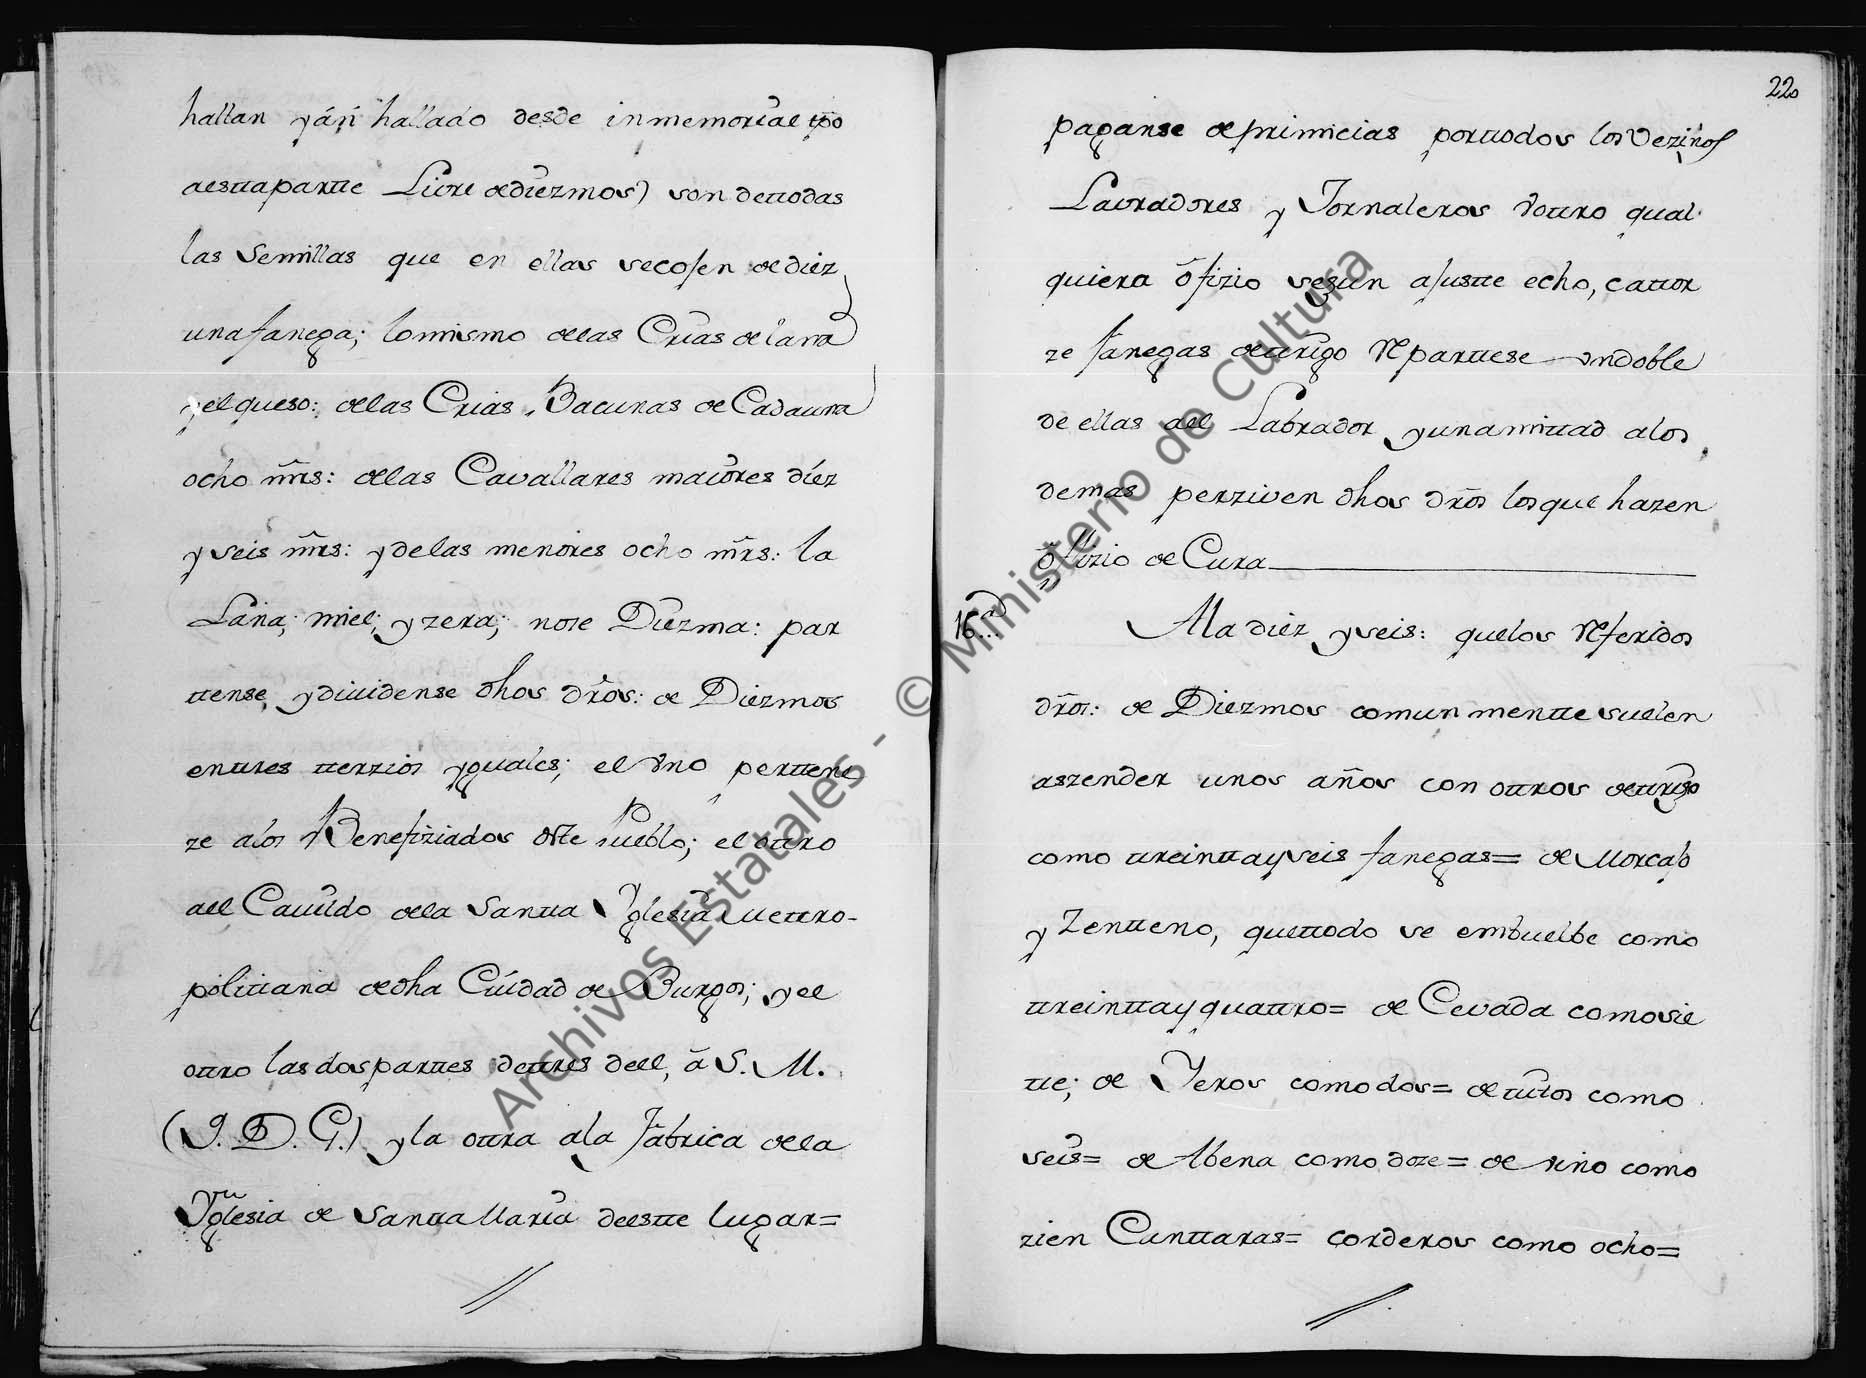 hallan y án hallado desde inmemorial tpo
aestta partte Livre de diezmos) son de ttodas
las Semillas que en ellas se cojen de diez
una fanega; lo mismo de las Crias de lana
y el queso: de las Crias Bacunas de Cada una
ocho mrs: de las Cavallares maiores diez
y seis mrs: y de las menores ocho mrs: la
Lana; miel; y zera; no se Diezma: par
ttense, y dividense dhos dros: de Diezmos
en ttres tterzios yguales; el vno perttene
ze a los Benefiziados dste Pueblo; el ottro
ael Cavildo de la Santta Yglesia Mettro-
polittana de dha Ciudad de Burgos; y el
ottro las dos parttes de ttres dell, á S. M.
(q. D. G.) y la ottra a la fabrica de la
Yglesia de Santta Maria de estte lugar=
220
paganse de primicias por ttodos los Vezinos
Lavradores y Jornaleros v ottro qual
quiera ofizio segun ajustte echo, cattor
ze fanegas de ttrigo Reparttese vn doble
de ellas ael Labrador y una mittad a los
demas perziven dhos dros los que hazen
ofizio de Cura
16..
A la diez y seis: que los Referidos
dros: de Diezmos comunmentte suelen
aszender unos años con ottros de ttrigo
como ttreintta y seis fanegas= de Morcajo
y Zentteno, que ttodo se embuelbe como
ttreintta y quattro= de Cevada como sie
tte; de Yeros como dos= de ttitos como
seis= de Abena como doze= de vino como
zien Canttaras= corderos como ocho=